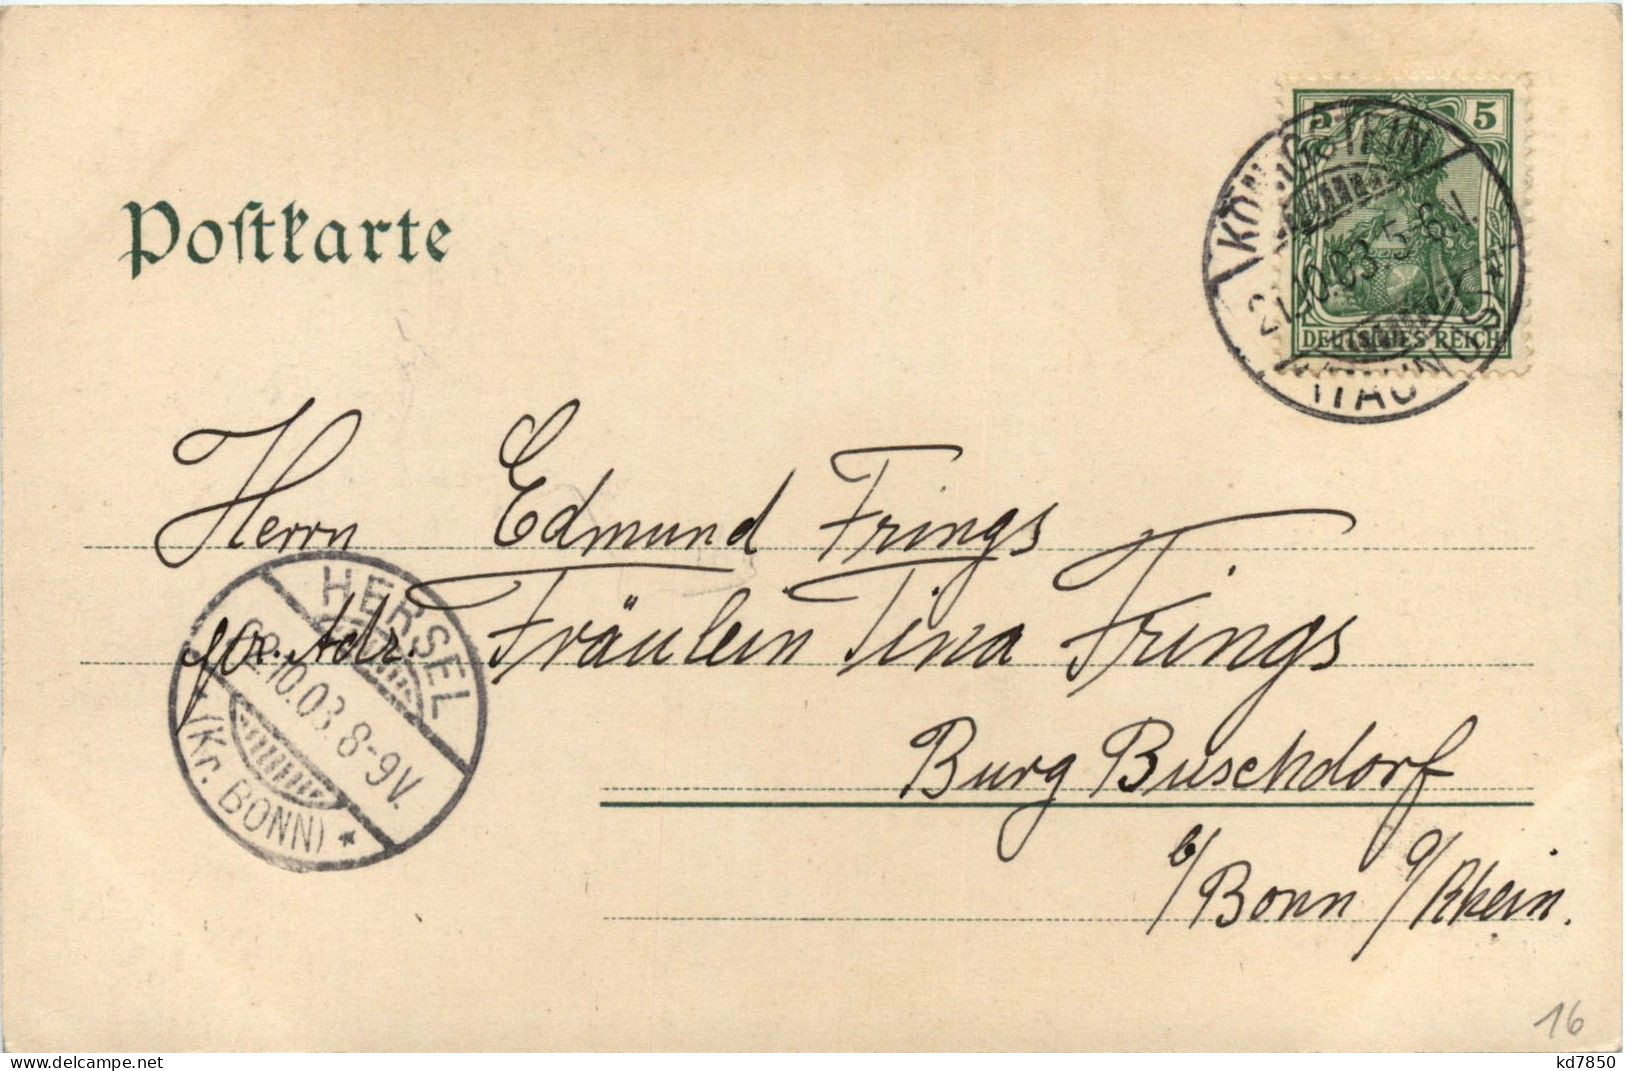 Postkarte
5 5
DEUTSCHES REICH
KÖNIGSTEIN
10.03. 5-8 V.
(TAUNUS)
Herrn Edmund Frings
gr. Adr. Fräulein Tina Frings
Burg Buschdorf
b/Bonn a/Rhein.
HERSEL
22.10.03. 8-9V.
(Kr. BONN) *
16
www.delcampe.net
kd7850